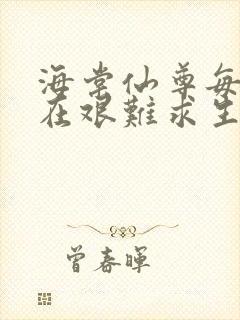 海棠仙尊每
在艰難求生
曾春暉